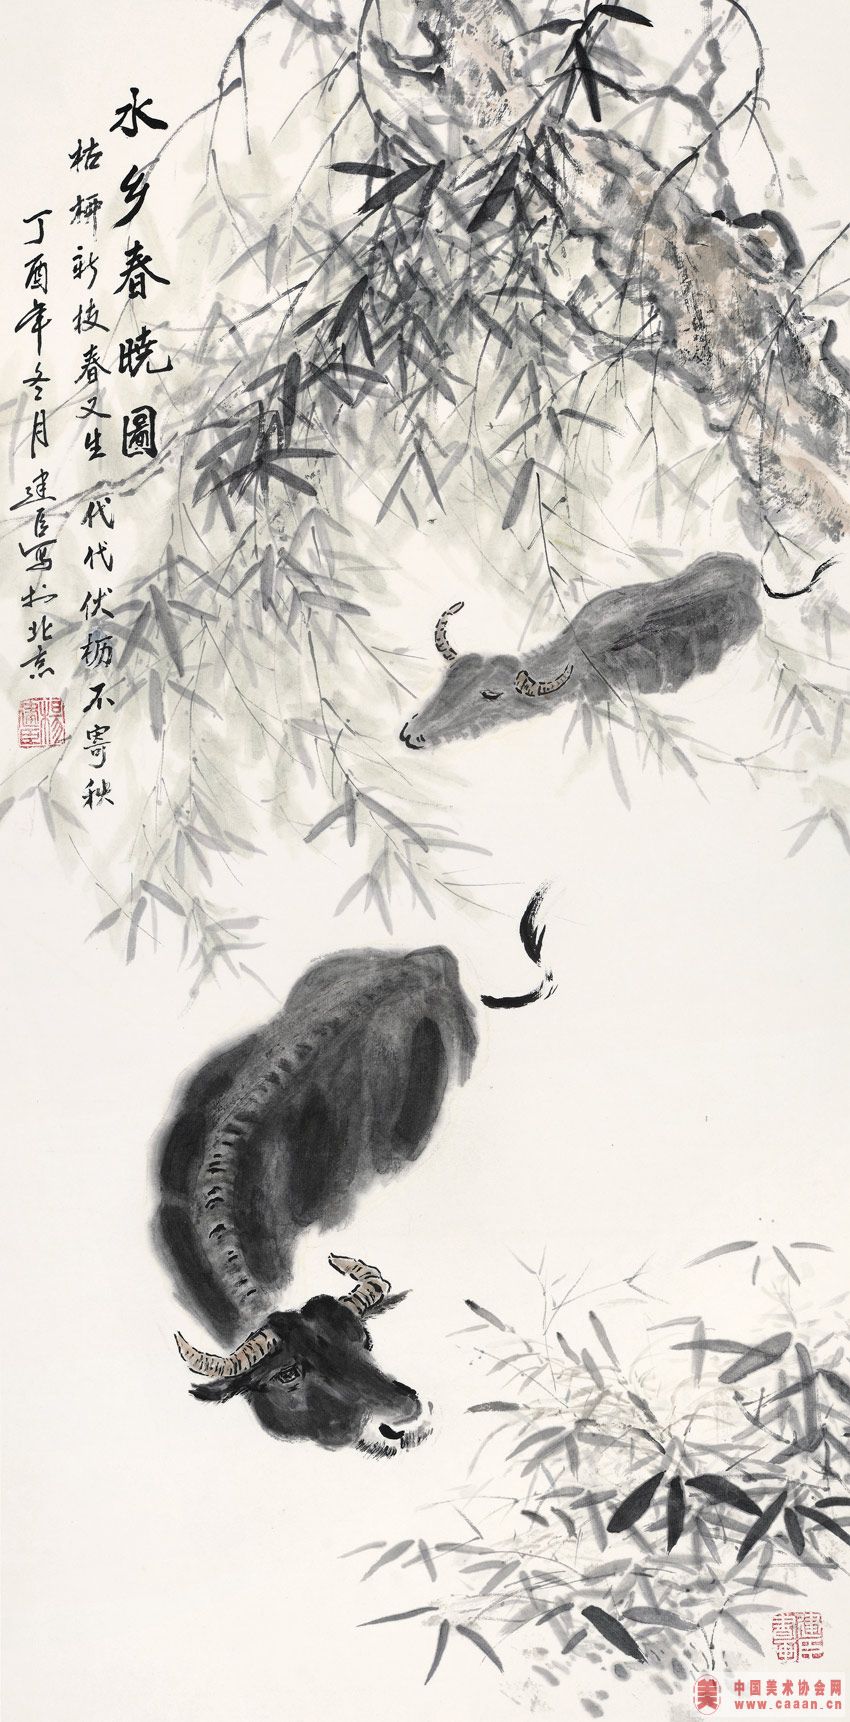 水乡春晓圖
枯柳新枝春又生 代代伏枥不寄秧
丁酉年冬月建臣写於北京
中国美术协会网
www.caaan.cn
美